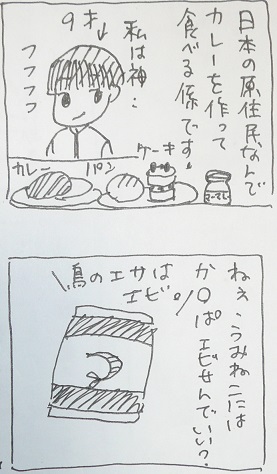 日本の原住民なんで
カレーを作って
食べる係です。
9才
私は神…
フフフフ
カレー
パン
ケーキ
ねぇ、うみねこには
か〇ぱえびせんでいい？
鳥のエサは
エビ。